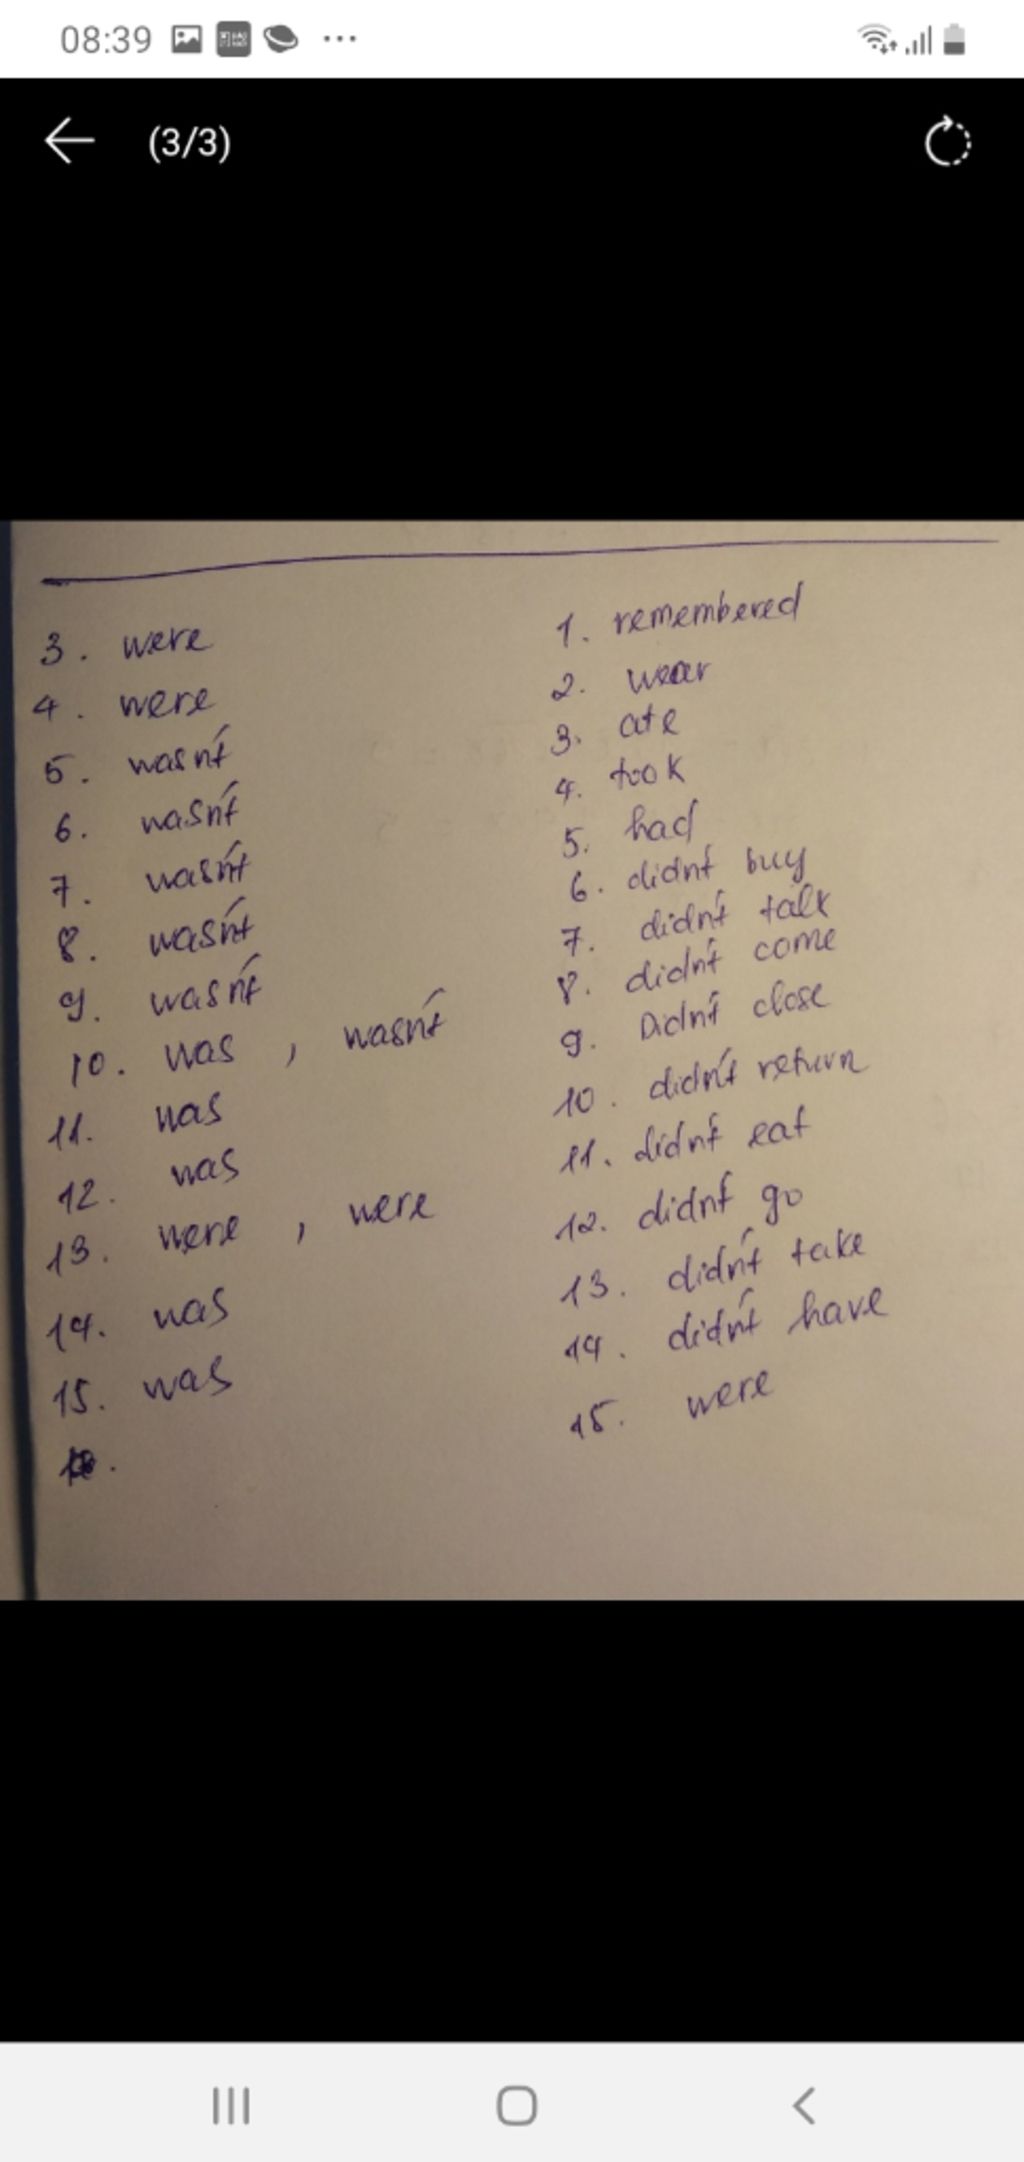 08:39
(3/3)
3. were
4. were
5. wasn't
6. wasn't
7. wasn't
8. wasn't
9. wasn't
10. was , wasn't
11. was
12. was
13. were , were
14. was
15. was
1. remembered
2. wear
3. ate
4. took
5. had
6. didn't buy
7. didn't talk
8. didn't come
9. Didn't close
10. didn't return
11. didn't eat
12. didn't go
13. didn't take
14. didn't have
15. were